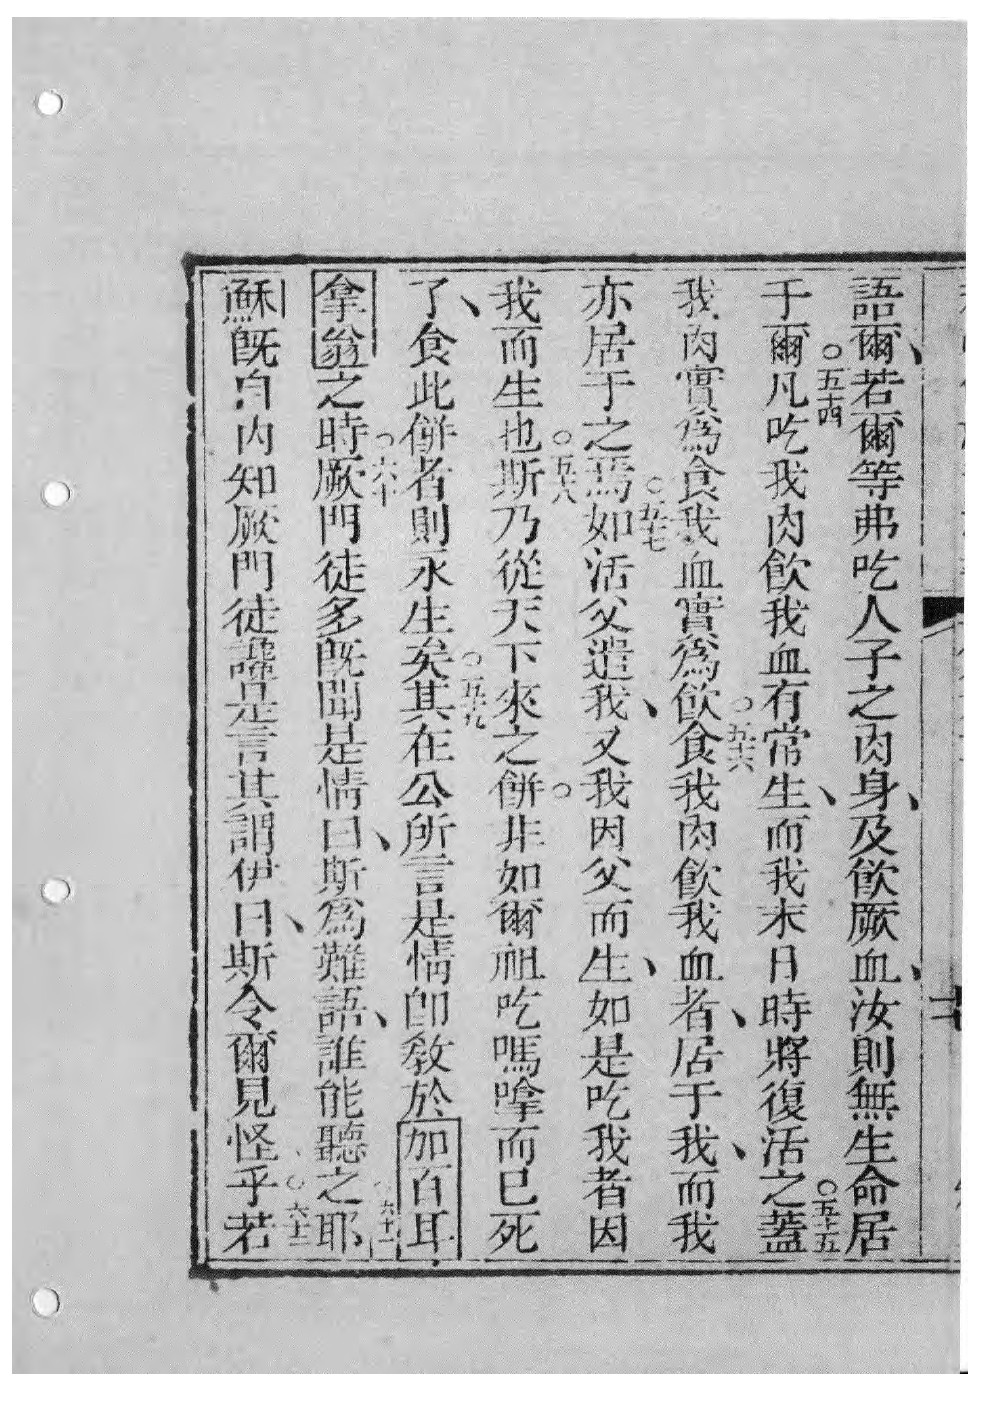 語爾若爾等弗吃人子之肉身及飲厥血汝則無生命居
于爾○五十四凡吃我肉飲我血有常生而我末日時將復活之○五十五蓋
我肉實爲食我血實爲飲○五十六食我肉飲我血者居于我而我
亦居于之焉○五十七如活父遣我又我因父而生如是吃我者因
我而生也○五十八斯乃從天下來之餅○非如爾祖吃嗎嗱而已死
了食此餅者則永生矣○五十九其在公所言是情卽教於加百耳
拿翁之時○六十厥門徒多既聞是情曰斯爲難語誰能聽之耶○六十一
穌既自內知厥門徒讙是言其謂伊曰斯令爾見怪乎○六十二若